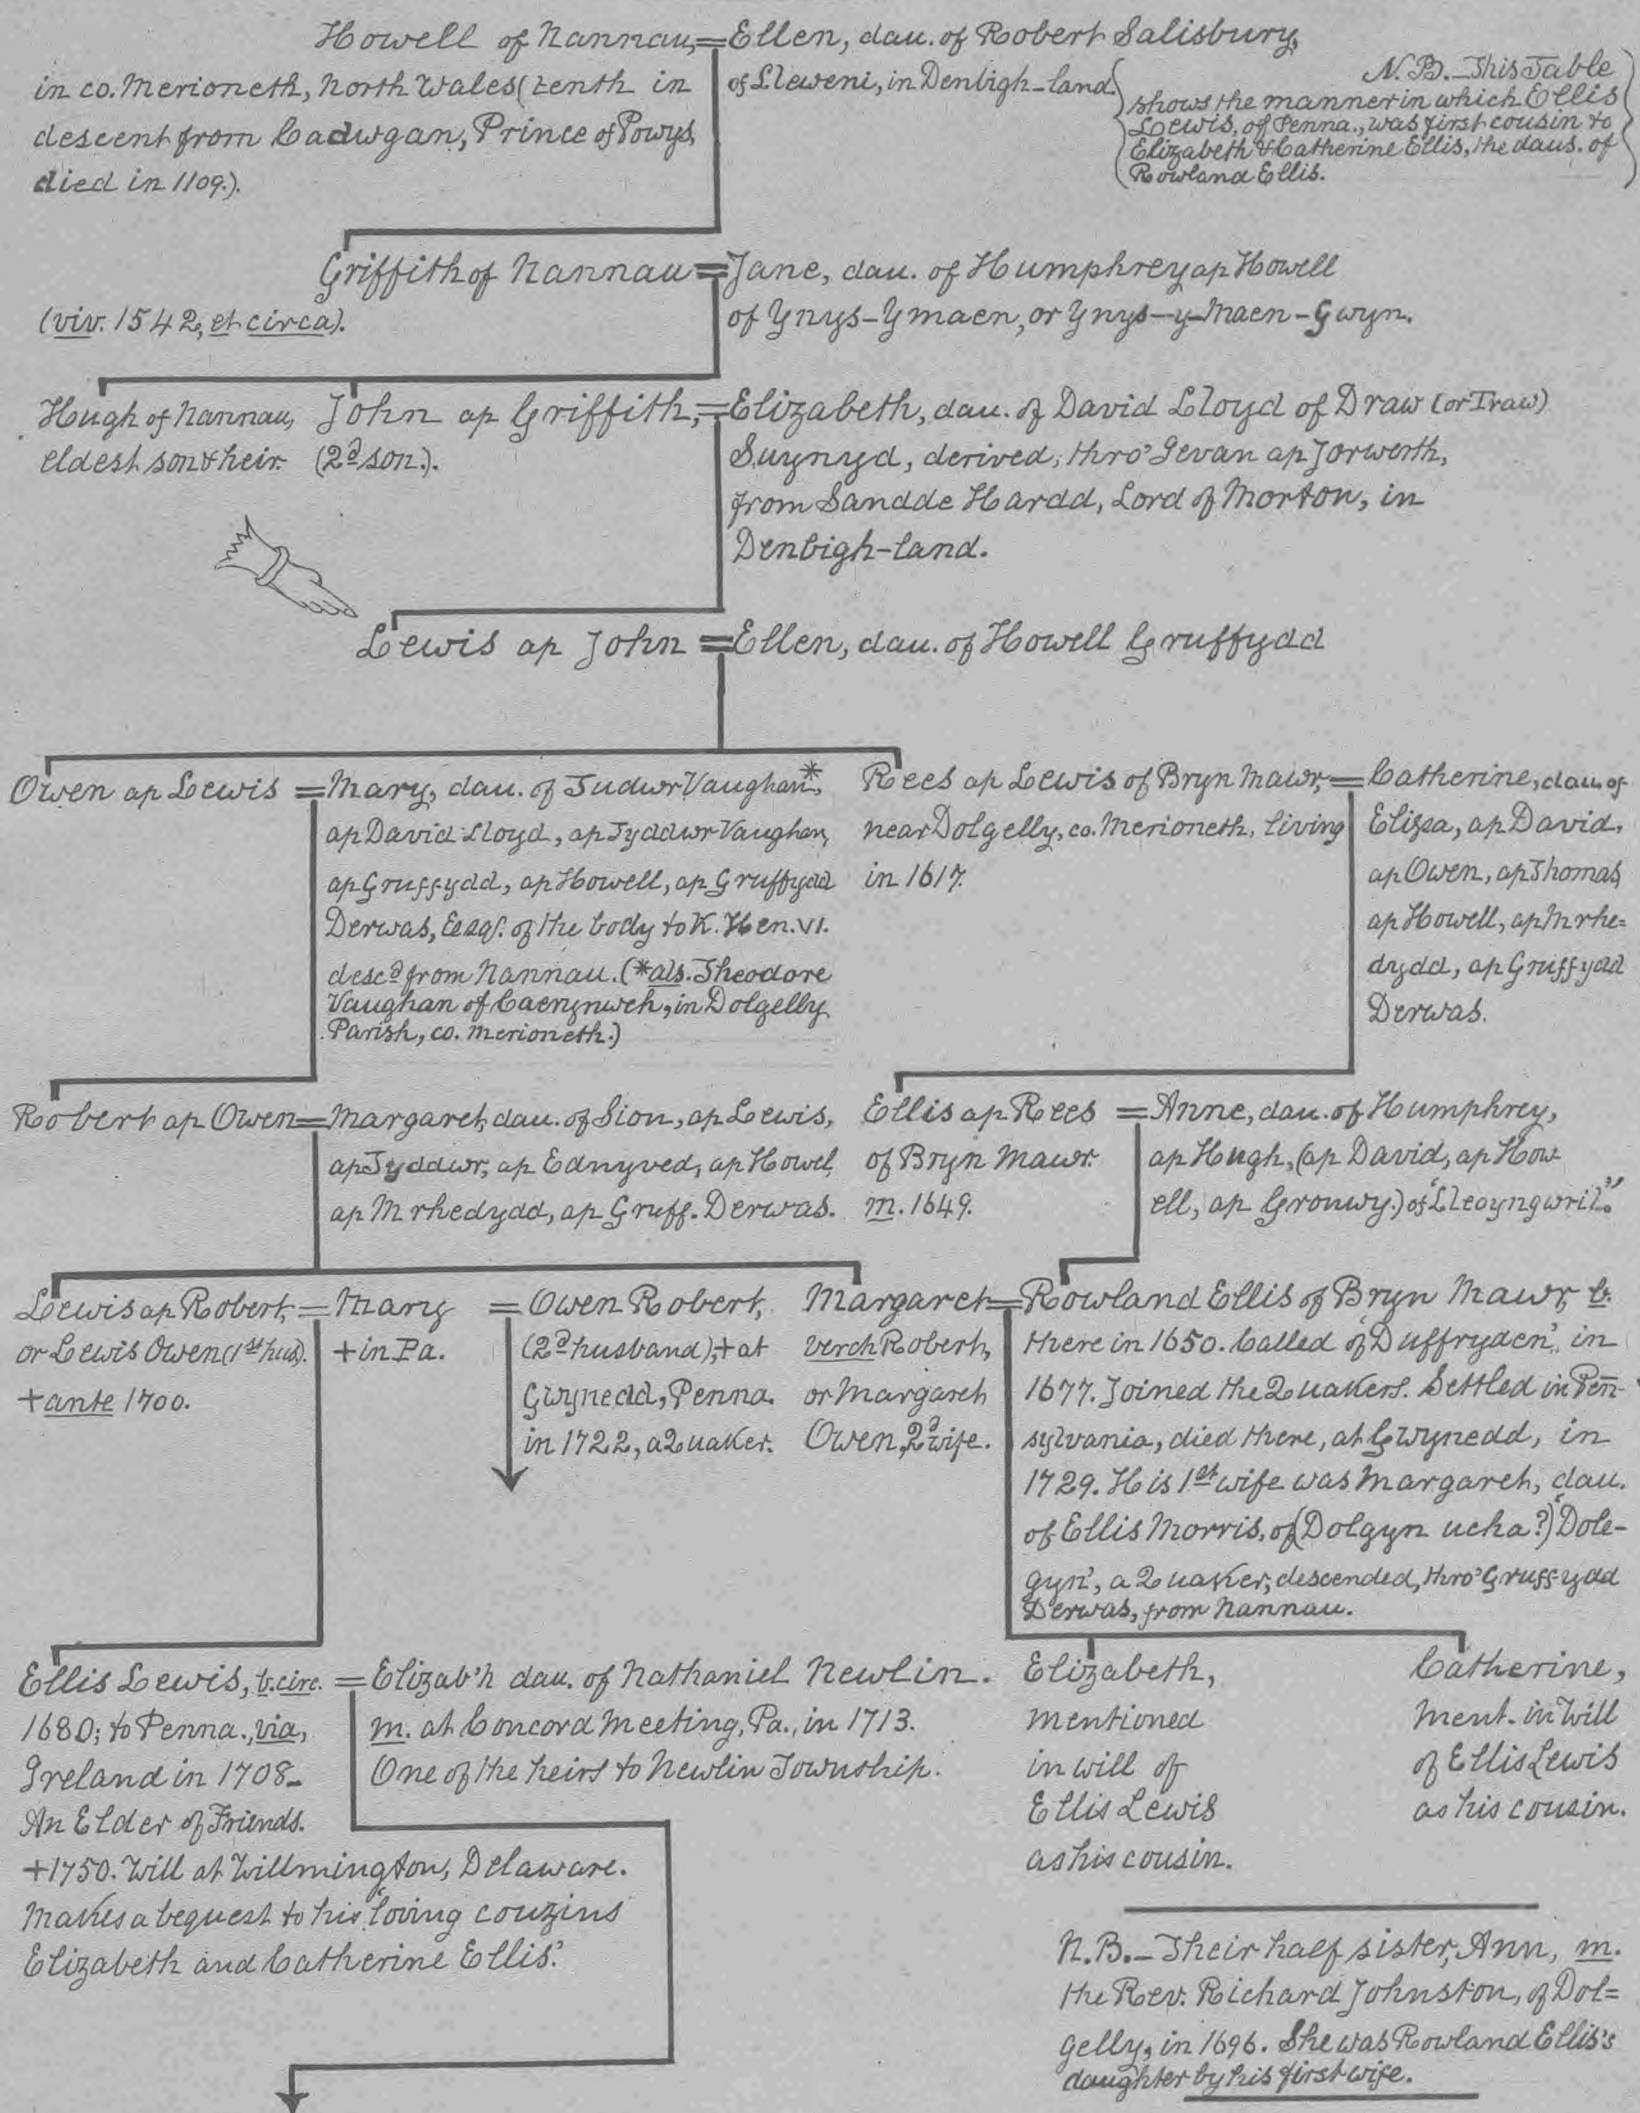 Howell of Nannau, = Ellen, dau. of Robert Salisbury,
in co. Merioneth, North Wales (tenth in
descent from Cadwgan, Prince of Powys,
died in 1109.).
of Lleweni, in Denbigh-land.
N.B.—This Table
shows the manner in which Ellis
Lewis, of Penna., was first cousin to
Elizabeth & Catherine Ellis, the daus. of
Rowland Ellis.
Griffith of Nannau = Jane, dau. of Humphrey ap Howell
(viv. 1542, et circa).
of Ynys-Ymaen, or Ynys-y-Maen-Gwyn.
Hugh of Nannau,
eldest son & heir.
John ap Griffith, = Elizabeth, dau. of David Lloyd of Draw (or Traw)
(2d son.).
Suynyd, derived, thro' Ievan ap Jorwerth,
from Sandde Hardd, Lord of Morton, in
Denbigh-land.
Lewis ap John = Ellen, dau. of Howell Gruffydd
Owen ap Lewis = Mary, dau. of Tudwr Vaughan*,
ap David Lloyd, ap Tyddwr Vaughan,
ap Gruffydd, ap Howell, ap Gruffydd
Derwas, Esqr. of the body to K. Hen. VI.
descd from Nannau. (*als. Theodore
Vaughan of Caerynwch, in Dolgelly
Parish, co. Merioneth.)
Rees ap Lewis of Bryn Mawr, = Catherine, dau. of
near Dolgelly, co. Merioneth, living
in 1617.
Eliza, ap David,
ap Owen, ap Thomas,
ap Howell, ap Mrhe=
dydd, ap Gruffydd
Derwas.
Robert ap Owen = Margaret, dau. of Sion, ap Lewis,
ap Tyddwr, ap Ednyved, ap Howel,
ap Mrhedydd, ap Gruff. Derwas.
Ellis ap Rees = Anne, dau. of Humphrey,
of Bryn Mawr.
m. 1649.
ap Hugh, (ap David, ap How-
ell, ap Gronwy.) of "Lleoyngwril."
Lewis ap Robert, = Mary = Owen Robert,
or Lewis Owen (1st hus).
+ ante 1700.
+ in Pa.
(2d husband), + at
Gwynedd, Penna.
in 1722, a Quaker.
Margaret = Rowland Ellis of Bryn Mawr, b.
verch Robert,
or Margaret
Owen, 2d wife.
there in 1650. Called of 'Duffryden', in
1677. Joined the Quakers. Settled in Pen-
sylvania, died there, at Gwynedd, in
1729. His 1st wife was Margaret, dau.
of Ellis Morris, of (Dolgyn ucha?) 'Dole-
gyn', a Quaker, descended, thro' Gruffydd
Derwas, from Nannau.
Ellis Lewis, b. circ. = Elizab'h dau. of Nathaniel Newlin.
1680; to Penna., via,
Ireland in 1708-
An Elder of Friends.
+1750. Will at Willmington, Delaware.
Makes a bequest to his 'loving couzins
Elizabeth and Catherine Ellis.'
m. at Concord Meeting, Pa., in 1713.
One of the heirs to Newlin Township.
Elizabeth,
mentioned
in will of
Ellis Lewis
as his cousin.
Catherine,
ment. in Will
of Ellis Lewis
as his cousin.
N.B.—Their half sister, Ann, m.
the Rev. Richard Johnston, of Dol=
gelly, in 1696. She was Rowland Ellis's
daughter by his first wife.